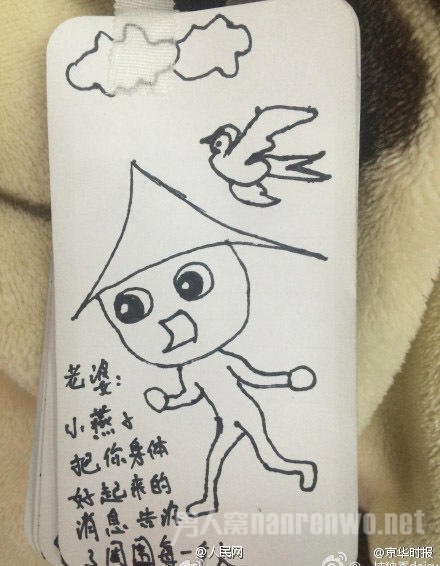 老婆：
小燕子
把你身体
好起来的
消息告诉
男人窝nanrenwo.net
了周围每一
@人民网
@京华时报